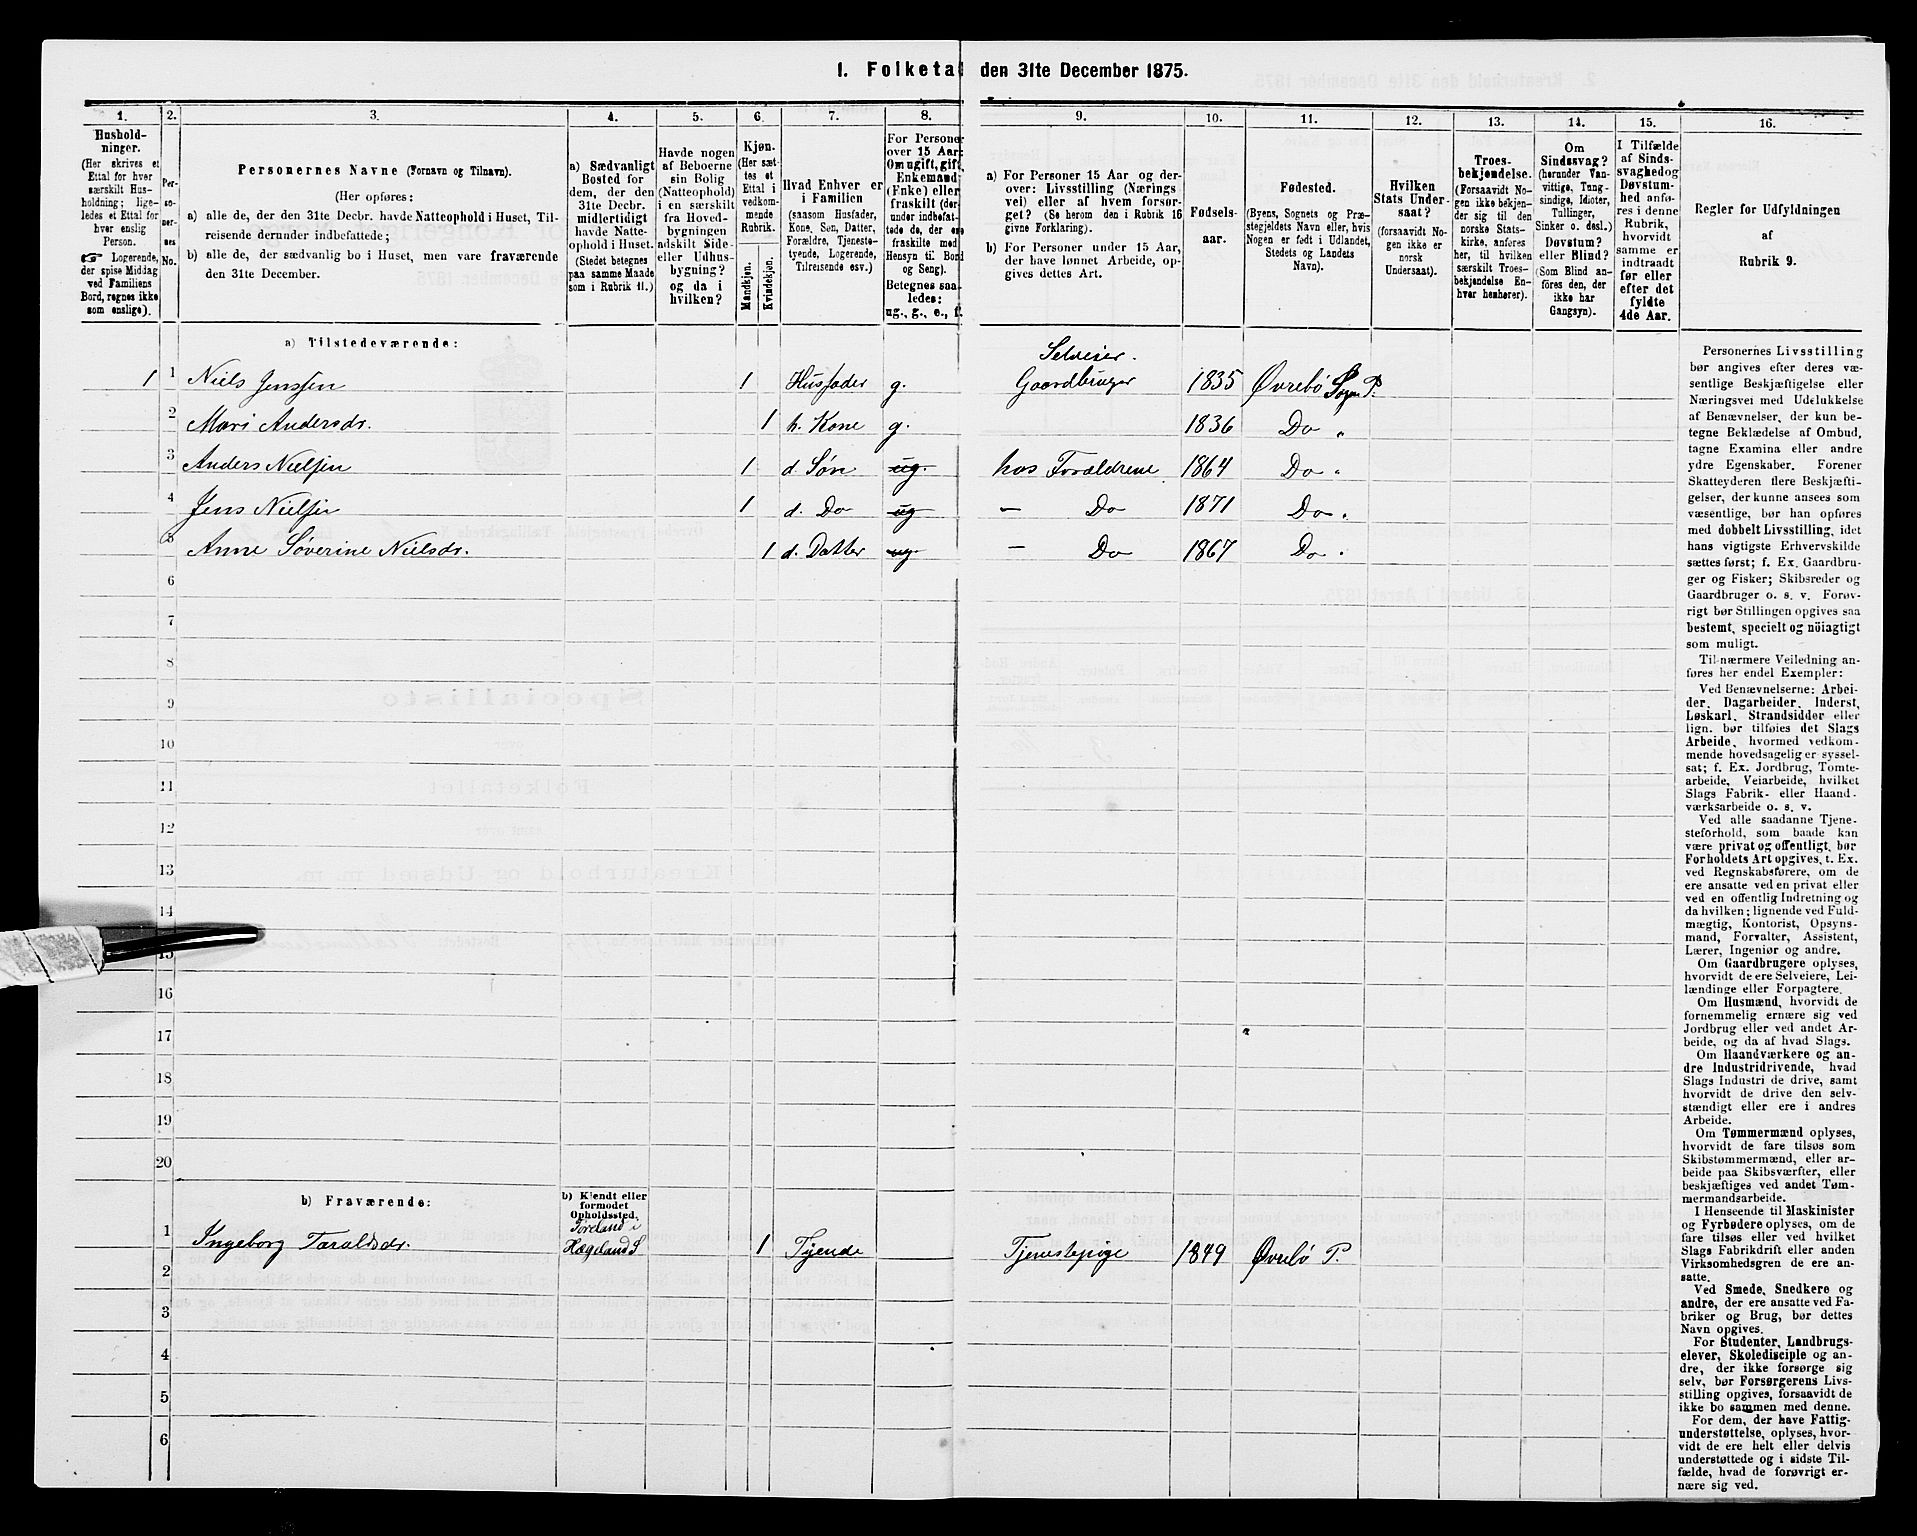 1. Folketal den 31te December 1875.
1.
Hushold-
ninger.
(Her skrives et
Ettal for hver
særskilt Hus-
holdning; lige-
ledes et Ettal for
hver enslig
Person.
Logerende,
der spise Middag
ved Familiens
Bord, regnes ikke
som enslige).
2.
Per-
so-
ner-
nes
No.
3.
Personernes Navne (Fornavn og Tilnavn).
(Her opføres:
a) alle de, der den 31te Decbr. havde Natteophold i Huset, Til-
reisende derunder indbefattede;
b) alle de, der sædvanlig bo i Huset, men vare fraværende
den 31te December.
4.
a) Sædvanligt
Bosted for
dem, der den
31te Decbr.
midlertidigt
havde Natte-
ophold i Huset.
(Stedet betegnes
paa samme Maade
som i Rubrik 11.)
5.
Havde nogen
af Beboerne
sin Bolig
(Natteophold)
i en særskilt
fra Hoved-
bygningen
adskilt Side-
eller Udhus-
bygning?
og da i
hvilken?
6.
Kjøn.
(Her sæt-
tes et
Ettal i
vedkom-
mende
Rubrik.
Mandkjøn.
Kvindekjøn.
7.
Hvad Enhver er
i Familien
(saasom Husfader,
Kone, Søn, Datter,
Forældre, Tjeneste-
tyende, Logerende,
Tilreisende osv.)
8.
For Personer
over 15 Aar:
Om ugift, gift,
Enkemand
(Enke) eller
fraskilt (der-
under indbefat-
tede de, der ere
fraskilte med
Hensyn til Bord
og Seng).
Betegnes saa-
ledes:
ug., g., e., f.
9.
a) For Personer 15 Aar og der-
over: Livsstilling (Nærings
vei) eller af hvem forsør-
get? (Se herom den i Rubrik 16
givne Forklaring).
b) For Personer under 15 Aar,
der have lønnet Arbeide, op-
gives dettes Art.
10.
Fødsels-
aar.
11.
Fødested.
(Byens, Sognets og Præ-
stegjeldets Navn eller, hvis
Nogen er født i Udlandet,
Stedets og Landets
Navn).
12.
Hvilken
Stats Under-
saat?
(forsaavidt No-
gen ikke er
norsk
Undersaat).
13.
Troes-
bekjendelse.
(Forsaavidt No-
gen ikke bekjen-
der sig til den
norske Stats-
kirke, anføres
her, til hvilken
særskilt Troes-
bekjendelse En-
hver henhører).
14.
Om
Sindssvag?
(herunder Van-
vittige, Tung-
sindige, Idioter,
Tullinger,
Sinker o. desl.)
Døvstum?
eller Blind?
(Som Blind an-
føres den, der
ikke har
Gangsyn).
15.
I Tilfælde
af Sinds-
svaghed og
Døvstum-
hed anfø-
res i denne
Rubrik,
hvorvidt
samme er
indtraadt
før eller
efter det
fyldte
4de Aar.
16.
Regler for Udfyldningen
af
Rubrik 9.
a) Tilstedeværende:
Selveier.
1 1 Niels Jenssen 1 Husfader g. Gaardbruger 1835 Øvrebø Sogn P.
2 Mari Andersdr. 1 h. Kone g. 1836 Do "
3 Anders Nielsen 1 d. Søn ug. hos Forældrene 1864 Do "
4 Jens Nielsen 1 d. Do ug — Do 1871 Do "
5 Anne Søverine Nielsdr. 1 d. Datter ug. — Do 1867 Do "
6
7
8
9
10
11
12
13
14
15
16
17
18
19
20
b) Fraværende:
b) Kjendt eller
formodet
Opholdssted.
Føreland i
1 Ingeborg Taraldsdr. Hægeland S 1 Tyende Tjenestepige 1849 Øvrebø P.
2
3
4
5
6
Personernes Livsstilling
bør angives efter deres væ-
sentlige Beskjæftigelse eller
Næringsvei med Udelukkelse
af Benævnelser, der kun be-
tegne Beklædelse af Ombud,
tagne Examina eller andre
ydre Egenskaber. Forener
Skatteyderen flere Beskjæfti-
gelser, der kunne ansees som
væsentlige, bør han opføres
med dobbelt Livsstilling, idet
hans vigtigste Erhvervskilde
sættes først; f. Ex. Gaardbru-
ger og Fisker; Skibsreder og
Gaardbruger o. s. v. Forøv-
rigt bør Stillingen opgives saa
bestemt, specielt og nöiagtigt
som muligt.
Til nærmere Veiledning an-
føres her endel Exempler:
Ved Benævnelserne: Arbei-
der, Dagarbeider, Inderst,
Løskarl, Strandsidder eller
lign. bør tilføies det Slags
Arbeide, hvormed vedkom-
mende hovedsagelig er syssel-
sat; f. Ex. Jordbrug, Tomte-
arbeide, Veiarbeide, hvilket
Slags Fabrik- eller Haand-
værksarbeide o. s. v.
Ved alle saadanne Tjene-
steforhold, som baade kan
være privat og offentligt, bør
Forholdets Art opgives, t. Ex.
ved Regnskabsførere, om de
ere ansatte ved en privat eller
ved en offentlig Indretning og
da hvilken; lignende ved Fuld-
mægtig, Kontorist, Opsyns-
mand, Forvalter, Assistent,
Lærer, Ingeniør og andre.
Om Gaardbrugere oplyses,
hvorvidt de ere Selveiere, Lei-
lændinge eller Forpagtere.
Om Husmænd, hvorvidt de
fornemmelig ernære sig ved
Jordbrug eller ved andet Ar-
beide, og da af hvad Slags.
Om Haandværkere og an-
dre Industridrivende, hvad
Slags Industri de drive, samt
hvorvidt de drive den selv-
stændigt eller ere i andres
Arbeide.
Om Tømmermænd oplyses,
hvorvidt de fare tilsøs som
Skibstømmermænd, eller ar-
beide paa Skibsværfter, eller
beskjæftiges ved andet Tøm-
mermandsarbeide.
I Henseende til Maskinister
og Fyrbødere oplyses, om de
fare tilsøs eller ved hvilket
Slags Fabrikdrift eller anden
Virksomhedsgren de ere an-
satte.
Ved Smede, Snedkere og
andre, der ere ansatte ved Fa-
briker og Brug, bør dettes
Navn opgives.
For Studenter, Landbrugs-
elever, Skoledisciple og an-
dre, der ikke forsørge sig
selv, bør Forsørgerens Livs-
stilling opgives, forsaavidt de
ikke bo sammen med denne.
For dem, der have Fattig-
understøttelse, oplyses, hvor-
vidt de ere helt eller delvis
understøttede og i sidste Til-
fælde, hvad de forøvrigt er-
nære sig ved.